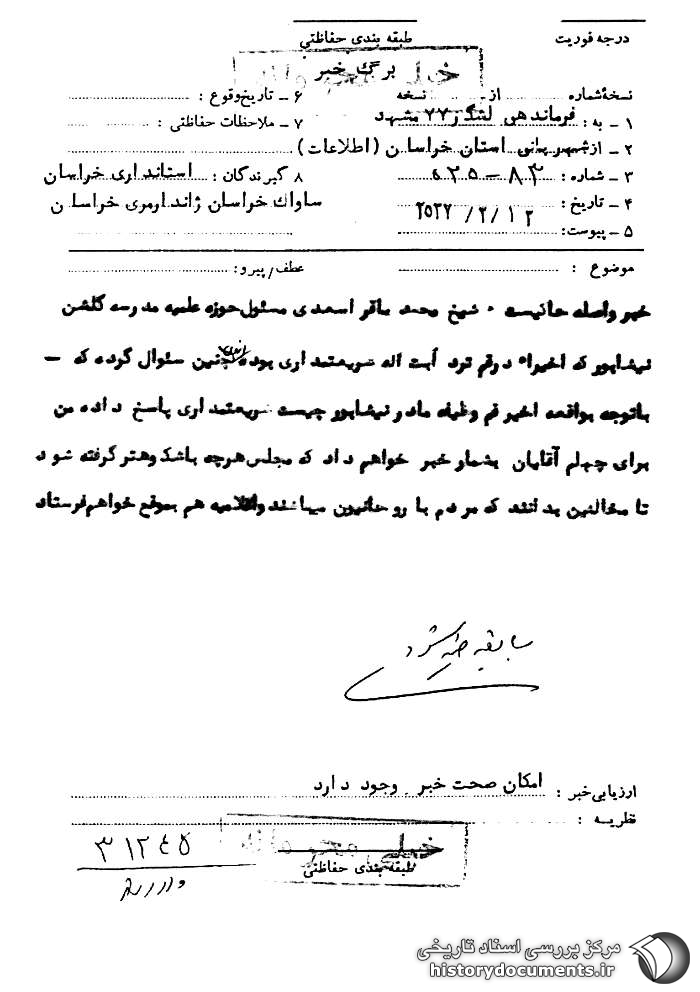 درجه فوریت
طبقه بندی حفاظتی
خیلی محرمانه
برگ خبر
نسخهٔ شماره ............ از ............ نسخه
۱ – به : فرماندهی لشگر ۷۷ مشهد
۲ – از شهربانی استان خراسان (اطلاعات)
۳ – شماره : ۸۳ – ۰۲۵
۴ – تاریخ : ۲۵۳۷/۲/۱۲
۵ – پیوست:
۶ – تاریخ وقوع :
۷ – ملاحظات حفاظتی :
۸ گیرندگان : استانداری خراسان
ساواك خراسان ژاندارمری خراسان
موضوع :
عطف/پیرو:
خبر واصله حاکیست . شیخ محمد باقر اسعدی مسئول حوزه علمیه مدرسه گلشن
نیشابور که اخیراً در قم نزد آیت اله شریعتمداری بوده چنین سئوال کرده که –
باتوجه بواقعه اخیر قم وظیفه ما در نیشابور چیست شریعتمداری پاسخ داده من
برای چهلم آقایان بشما خبر خواهم داد که مجلس هرچه باشکوهتر گرفته شود
تا مخالفین بدانند که مردم با روحانیون میباشند واعلامیه هم بموقع خواهم فرستاد
سابقه
ارزیابی خبر : امکان صحت خبر . وجود دارد
نظریه :
خیلی محرمانه
طبقه بندی حفاظتی
۳۱۲۴۵
مرکز بررسی اسناد تاریخی
historydocuments.ir